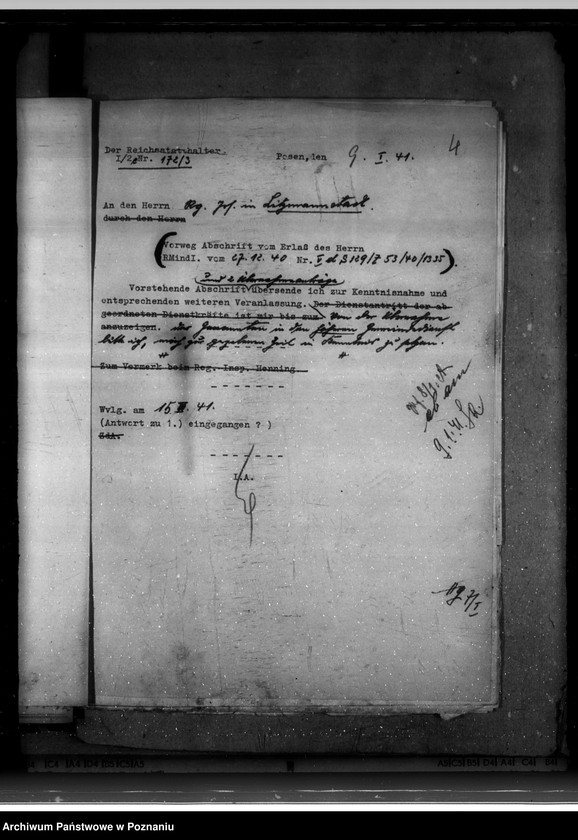 4
Der Reichsstatthalter
I/2 Nr. 172/3
Posen, den 9. I. 41.
An den Herrn Rg. Prs. in Litzmannstadt.
durch den Herrn
(Vorweg Abschrift vom Erlaß des Herrn
RMindI. vom 27.12.40 Nr. 53/40/1335).
und 2 Überweisungs
Vorstehende Abschrift übersende ich zur Kenntnisnahme und
entsprechenden weiteren Veranlassung. Der Dienstantritt der ab
geordneten Dienstkräfte ist mir bis zum Von der Übernahme
anzuzeigen. des Genannten in den höheren Gemeindedienst
bitte ich, mich zu gegebener Zeit in Kenntnis zu setzen.
Zum Vermerk beim Reg. Insp. Henning
Wvlg. am 15. 41.
(Antwort zu 1.) eingegangen ? )
ZdA.
I.A.
9.1.41
7/I
Archiwum Państwowe w Poznaniu